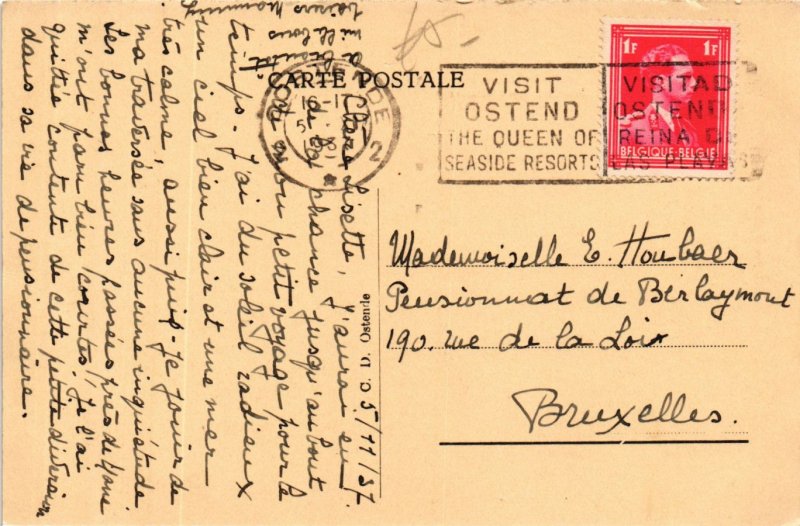 CARTE POSTALE
5/11/37.
Chère Lisette, J'aurai eu
de la chance jusqu'au bout
de mon petit voyage pour le
temps. J'ai du soleil radieux
un ciel bien clair et une mer
très calme, aussi puis-je jouir de
ma traversée sans aucune inquiétude
Les bonnes heures passées près de
m'ont paru bien courtes; je t'ai
quittée contente de cette petite diversion
dans ta vie de pensionnaire.
à bientôt
mille bons
baisers
C. D. Ostende
OOSTENDE
2
VISIT
OSTEND
THE QUEEN OF
SEASIDE RESORTS
VISITAD
OSTEND
REINA DE
LAS PLAYAS
1F 1F
BELGIQUE-BELGIE
Mademoiselle E. Houbaer
Pensionnat de Berlaymont
190. rue de la Loi
Bruxelles.